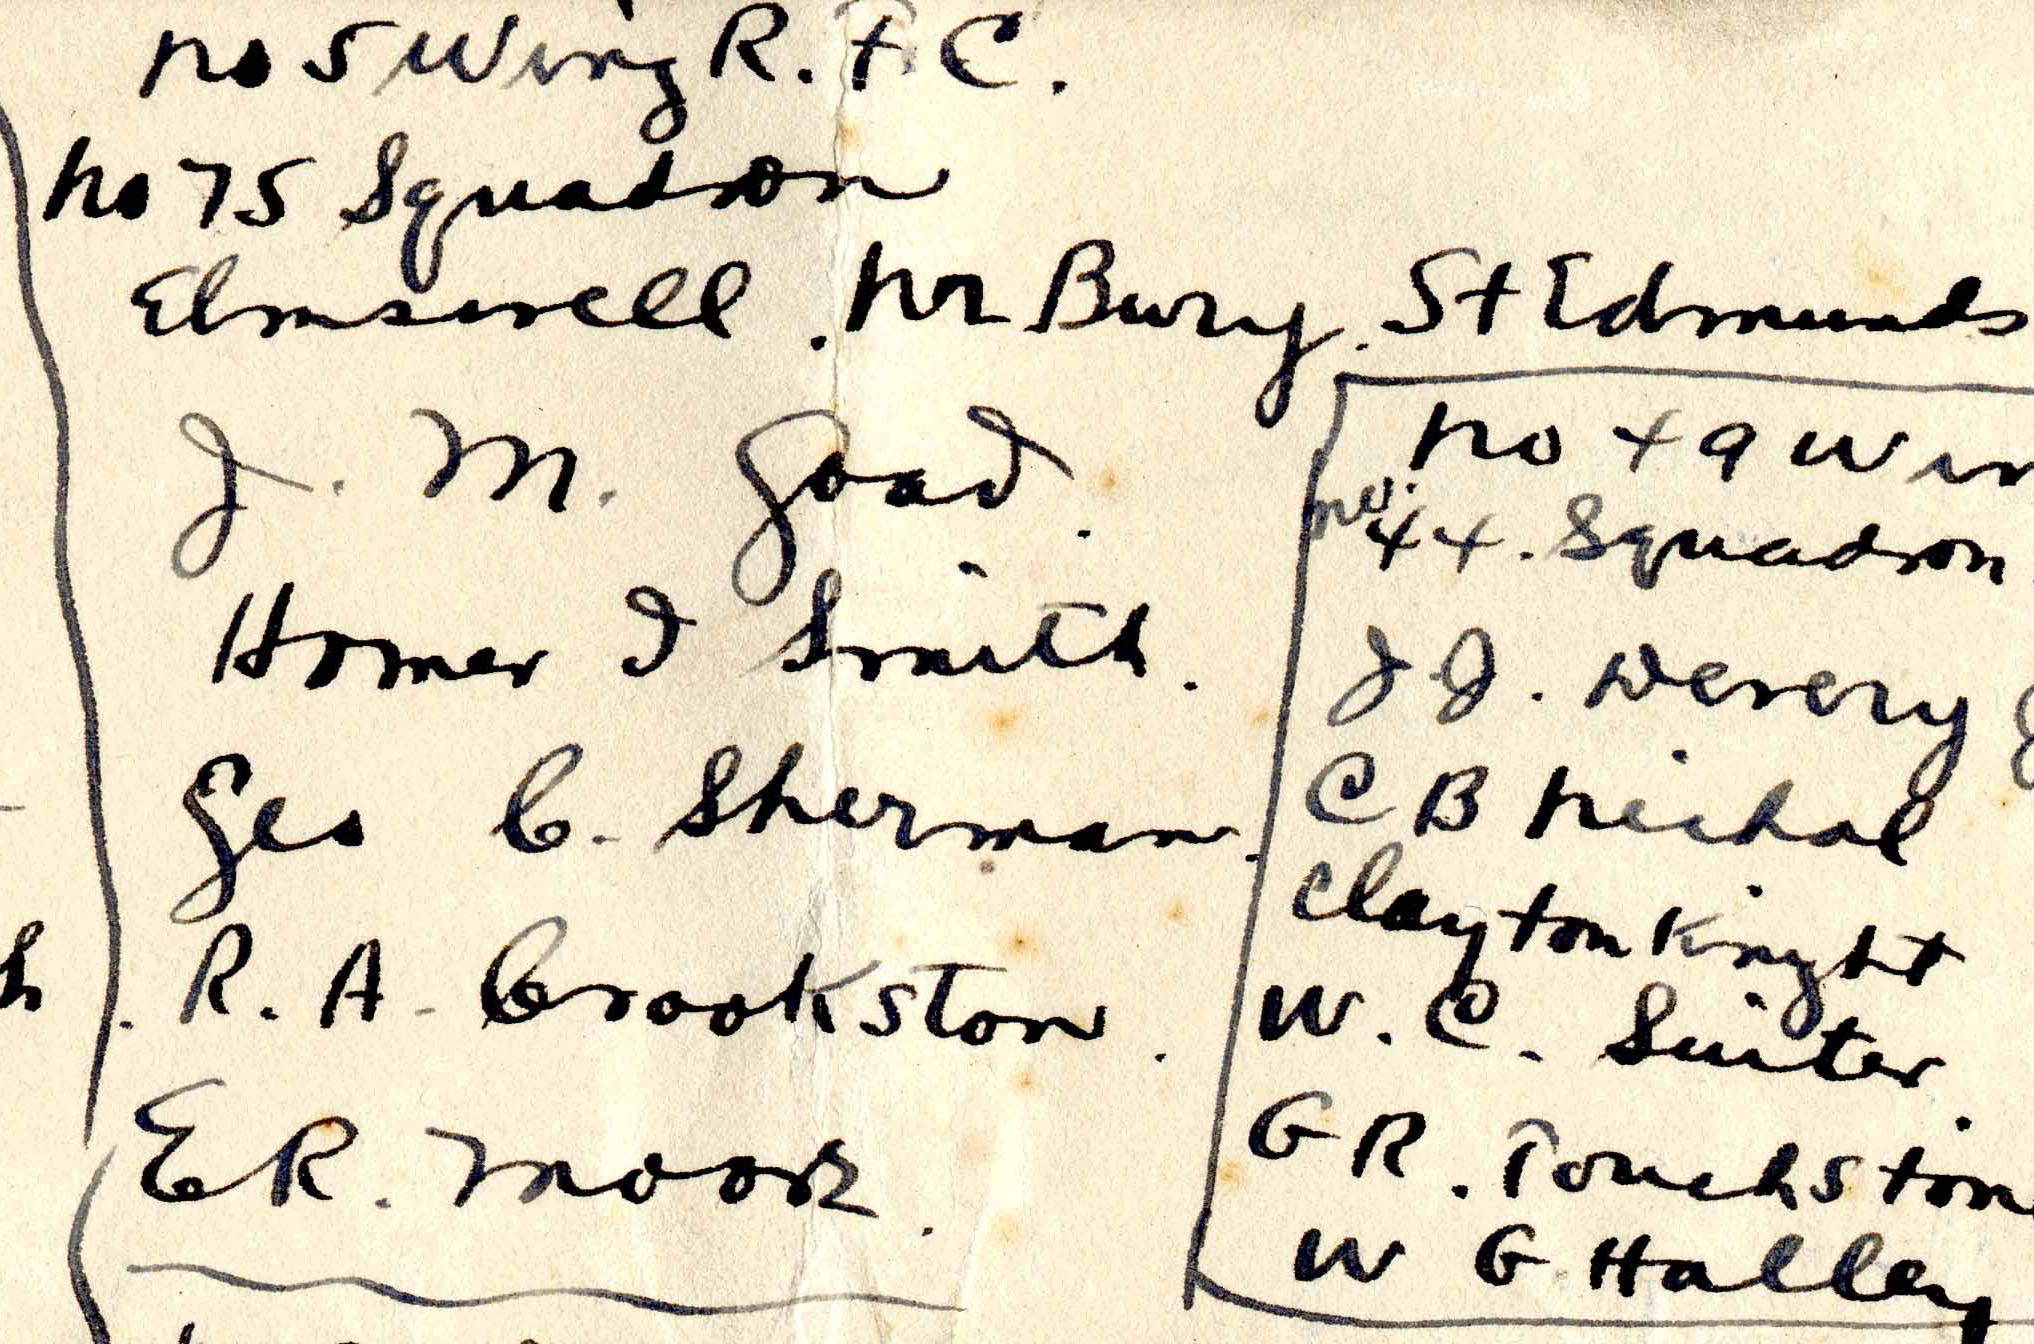 no 5 Wing R.F.C.
no 75 Squadron
Elmswell . nr Bury . St Edmunds
J. M. Goad.
Homer I Smith.
Geo C. Sherman.
R. A. Crookston.
E R. Moore.
no 49 Win
no. 44. Squadron
J. J. Devery
C B Nichol
Clayton Knight
W. C. Suiter.
G R. Touchston
W G Halley